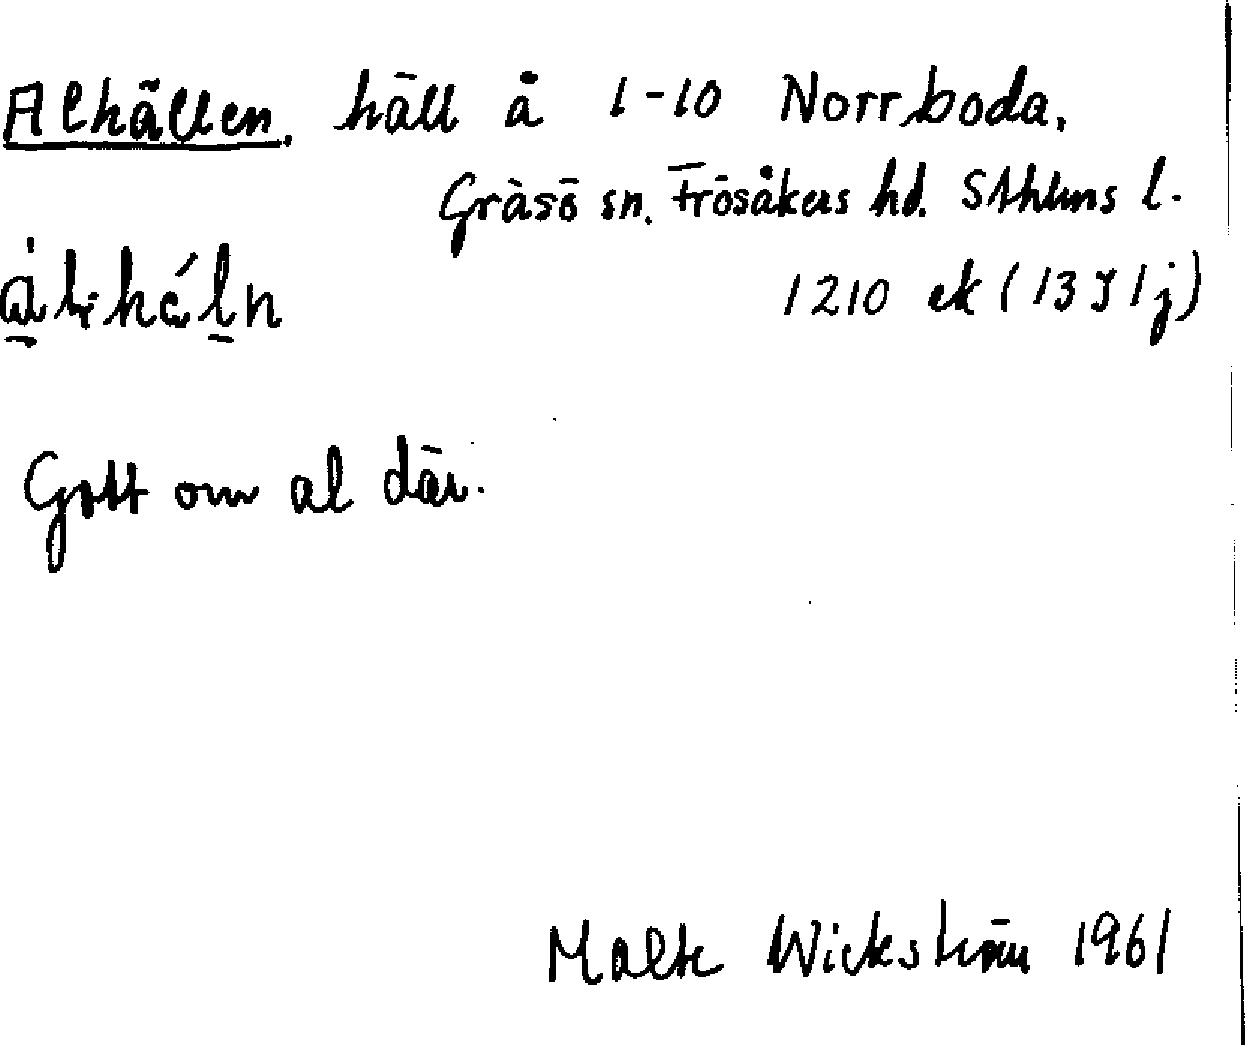 Alhällen. häll å 1-10 Norrboda,
Gräsö sn. Frösåkers hd. Sthlms l.
1210 ek (13 I 1j)
Gott om al där.
Malte Wickström 1961